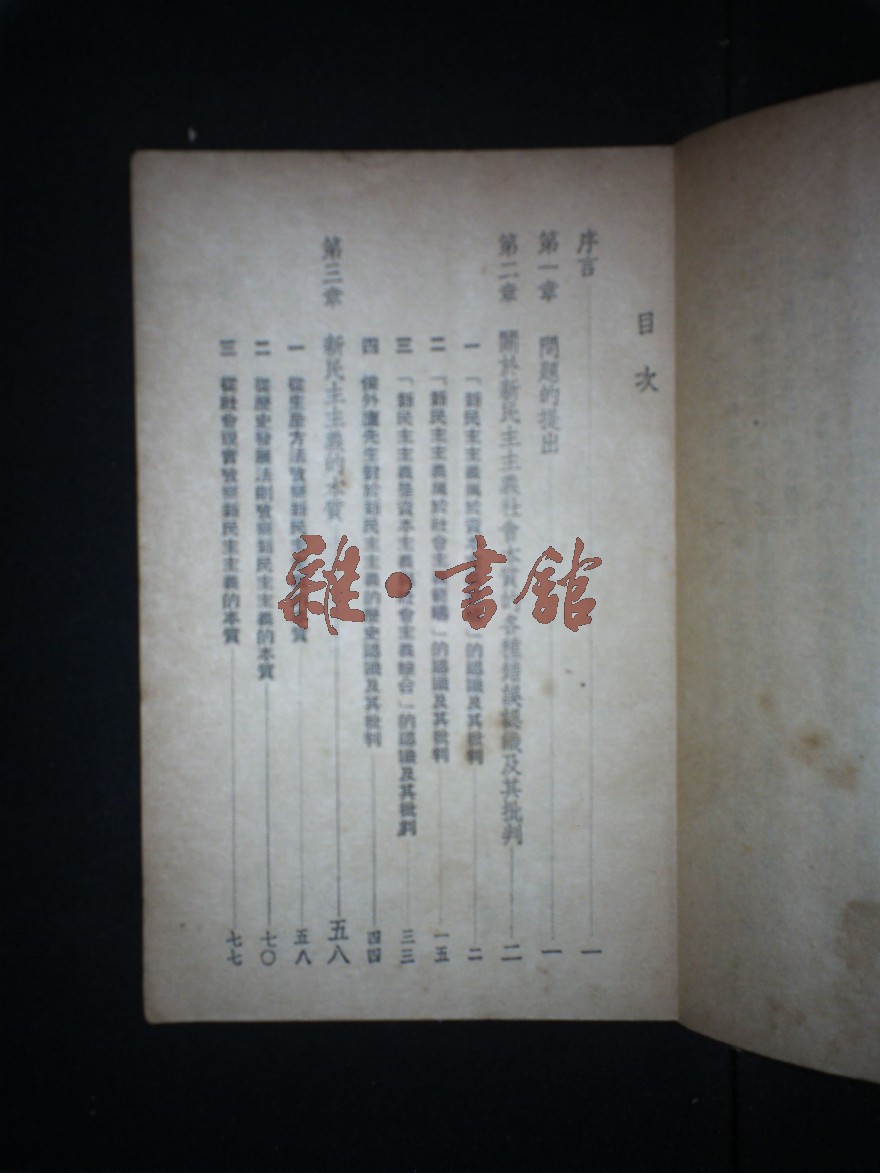 目次
序言 一
第一章 問題的提出 一
第二章 關於新民主主義社會本質 各種錯誤認識及其批判 二
一 「新民主主義屬於資 」的認識及其批判 二
二 「新民主主義屬於社會主義範疇」的認識及其批判 一五
三 「新民主主義是資本主義 社會主義綜合」的認識及其批判 三三
四 侯外廬先生對於新民主主義的歷史認識及其批判 四四
第三章 新民主主義的本質 五八
一 從生產方法號察新民主 質 五八
二 從歷史發展法則號察新民主主義的本質 七〇
三 從社會現實號察新民主主義的本質 七七
雜·書館